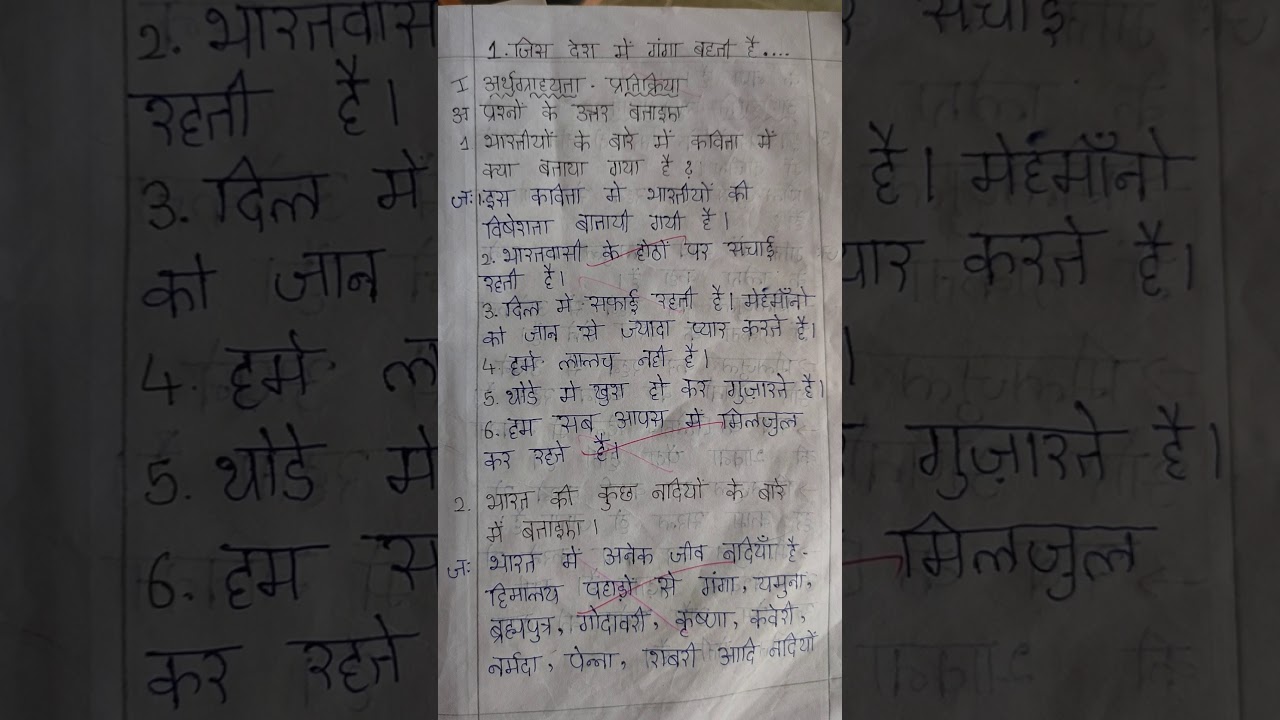 1. जिस देश में गंगा बहती है....
I अर्थग्राह्यता - प्रतिक्रिया
अ प्रश्नों के उत्तर बताइए
1 भारतीयों के बारे में कविता में
क्या बताया गया है ?
जः 1. इस कविता मे भारतीयों की
विषेशता बातायी गयी है।
2. भारतवासी के होठों पर सचाई
रहती है।
3. दिल मे सफाई रहती है। मेहंमाँनो
को जान से ज्यादा प्यार करते है।
4 हमे लालच नही है।
5. थोडे मे खुश हो कर गुज़ारते है।
6. हम सब आपस में मिलजुल
कर रहते है।
2. भारत की कुछ नदियों के बारे
में बताइए।
जः भारत में अनेक जीव नदियाँ है-
हिमालय पहाड़ो से गंगा, यमुना,
ब्रह्मपुत्र, गोदावरी, कृष्णा, कवेरी,
नर्मदा, पेन्ना, शिबरी आदि नदियों